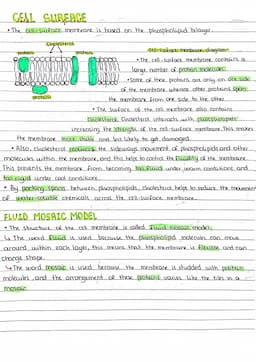 CELL SURFACE
• The cell-surface membrane is based on the phospholipid bilayer.
Cholesterol
protein
protein
protein
cell-surface membrane diagram
• The cell-surface membrane contains a
large number of protein molecules.
• Some of these proteins are only on one side
of the membrane whereas other proteins span
the membrane from one side to the other.
• The surface of the membrane also contains
cholesterol. Cholesterol interacts with phospholipids
increasing the strength of the cell-surface membrane. This makes
the membrane more stable and less likely to get damaged.
• Also, cholesterol reduces the sideways movement of phospholipids and other
molecules within the membrane, and this helps to control the fluidity of the membrane.
This prevents the membrane from becoming too fluid under warm conditions and
too rigid under cool conditions.
• By packing spaces between phospholipids, cholesterol helps to reduce the movement
of water-soluble chemicals across the cell-surface membrane.
FLUID MOSAIC MODEL
• The structure of the cell membrane is called fluid mosaic model.
↳ The word fluid is used because the phospholipid molecules can move
around within each layer, this means that the membrane is flexible and can
change shape.
↳ The word mosaic is used because the membrane is studded with protein
molecules and the arrangement of these proteins varies like the tiles in a
mosaic.